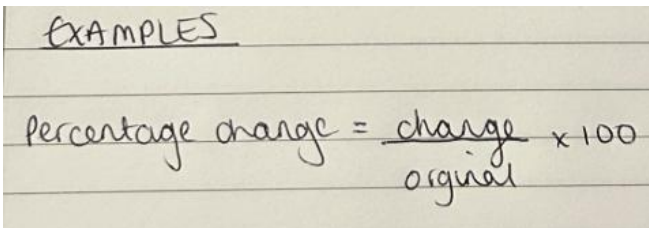 EXAMPLES
Percentage change = change x 100
orginal